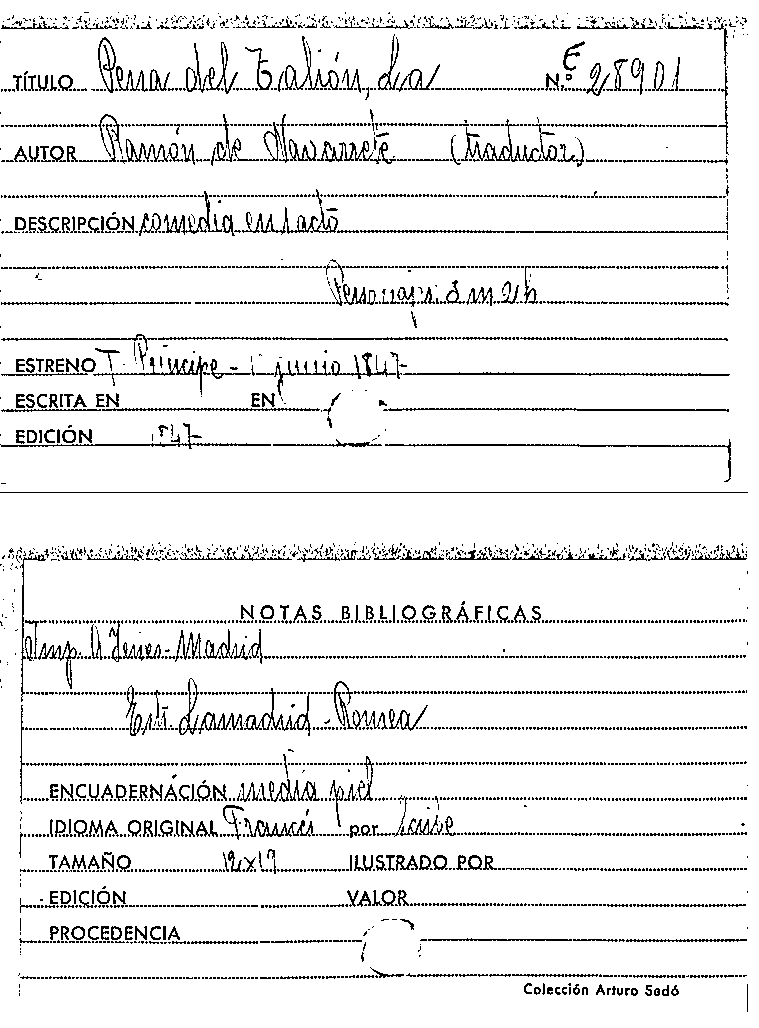 TÍTULO Pena del Talión, La N.º E 28901
AUTOR Ramón de Navarrete (traductor)
DESCRIPCIÓN comedia en 1 acto
Personajes: 3 m 2 h
ESTRENO T. Príncipe - 1 junio 1847
ESCRITA EN EN
EDICIÓN 1847
NOTAS BIBLIOGRÁFICAS
Imp. Madrid
Estr. Lamadrid - Romea
ENCUADERNACIÓN media piel
IDIOMA ORIGINAL Francés por Scribe
TAMAÑO 12x19 ILUSTRADO POR
EDICIÓN VALOR
PROCEDENCIA
Colección Arturo Sedó